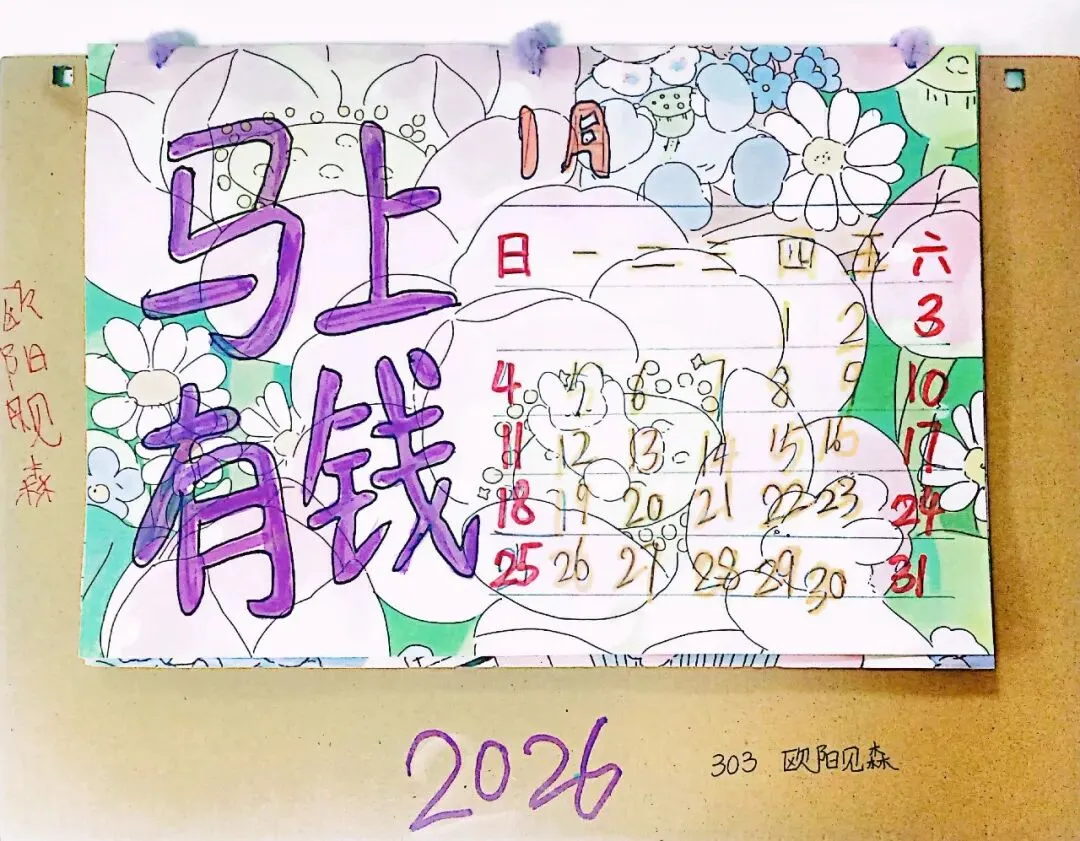 1月
马上
有钱
日 一 二 三 四 五 六
1 2 3
4 5 6 7 8 9 10
11 12 13 14 15 16 17
18 19 20 21 22 23 24
25 26 27 28 29 30 31
欧阳觊森
2026
303 欧阳见森